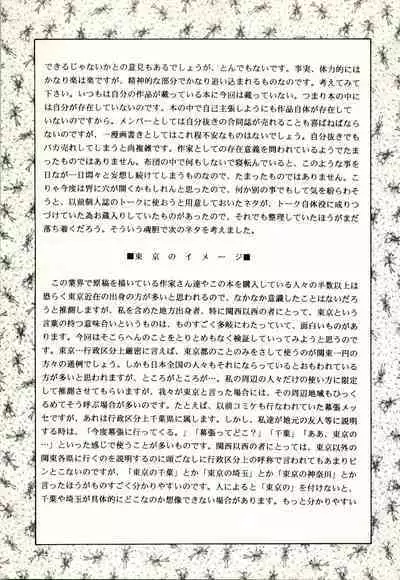 できるじゃないかとの意見もあるでしょうが、とんでもないです。事実、体力的には
かなり楽は楽ですが、精神的な部分でかなり追い込まれるものなのです。考えてみて
下さい。いつもは自分の作品が載っている本に今回は載っていない。つまり本の中に
は自分が存在していないのです。本の中で自己主張しようにも作品自体が存在して
いないのですから。メンバーとしては自分抜きの合同誌が売れることも喜ばねばなら
ないのですが、一漫画書きとしてはこれ程不安なものはないでしょう。自分抜きでも
バカ売れしてしまうと尚複雑です。作家としての存在意義を問われているようでたま
ったものではありません。布団の中で何もしないで寝転んでいると、このような事を
日なが一日悶々と妄想し続けてしまうものなので、たまったものではありません。こ
りゃ今度は胃に穴が開くかもしれんと思ったので、何か別の事でもして気を紛らわそ
うと、以前個人誌のトークに使おうと用意しておいたネタが、トーク自体役に成りつ
づけていた為お蔵入りしていたものがあったので、それでも整理していたほうがまだ
落ち着くだろう。そういう魂胆で次のネタを考えました。
■東京のイメージ■
この業界で原稿を描いている作家さん達やこの本を購入している人々の半数以上は
恐らく東京近在の出身の方が多いと思われるので、なかなか意識したことはないだろ
うと推測しますが、私を含めた地方出身者、特に関西以西の者にとって、東京という
言葉の持つ意味合いというものは、ものすごく多岐にわたっていて、面白いものがあ
ります。今回はそこらへんのことをとりとめもなく検証していってみようと思うので
す。東京…行政区分上厳密に言えば、東京都のことのみをさして使うのが関東一円の
方々の通例でしょう。しかも日本全国の人々もそれにならっているとおもわれている
方が多いと思われますが、ところがところが…。私の周りの人々だけの使い方に限定
して推測させてもらいますが、我々が東京と言った場合には、その周辺地域もひっく
るめてそう呼ぶ場合が多いのです。たとえば、以前コミケも行なわれていた幕張メッ
セですが、あれは行政区分上千葉県に属します。しかし、私達が地元の友人等に説明
する時は、「今度幕張に行ってくる。」「幕張ってどこ?」「千葉」「ああ、東京の
…」といった感じで使うことが多いものです。関西以西の者にとっては、東京以外の
関東各県に行くのを説明するのに頭ごなしに行政区分上の呼称で言われてもあまりピ
ンとこないのですが、「東京の千葉」とか「東京の埼玉」とか「東京の神奈川」とか
言ったほうがものすごく分かりやすいのです。人によると「東京の」を付けないと、
千葉や埼玉が具体的にどこなのか想像できない場合があります。もっと分かりやすい